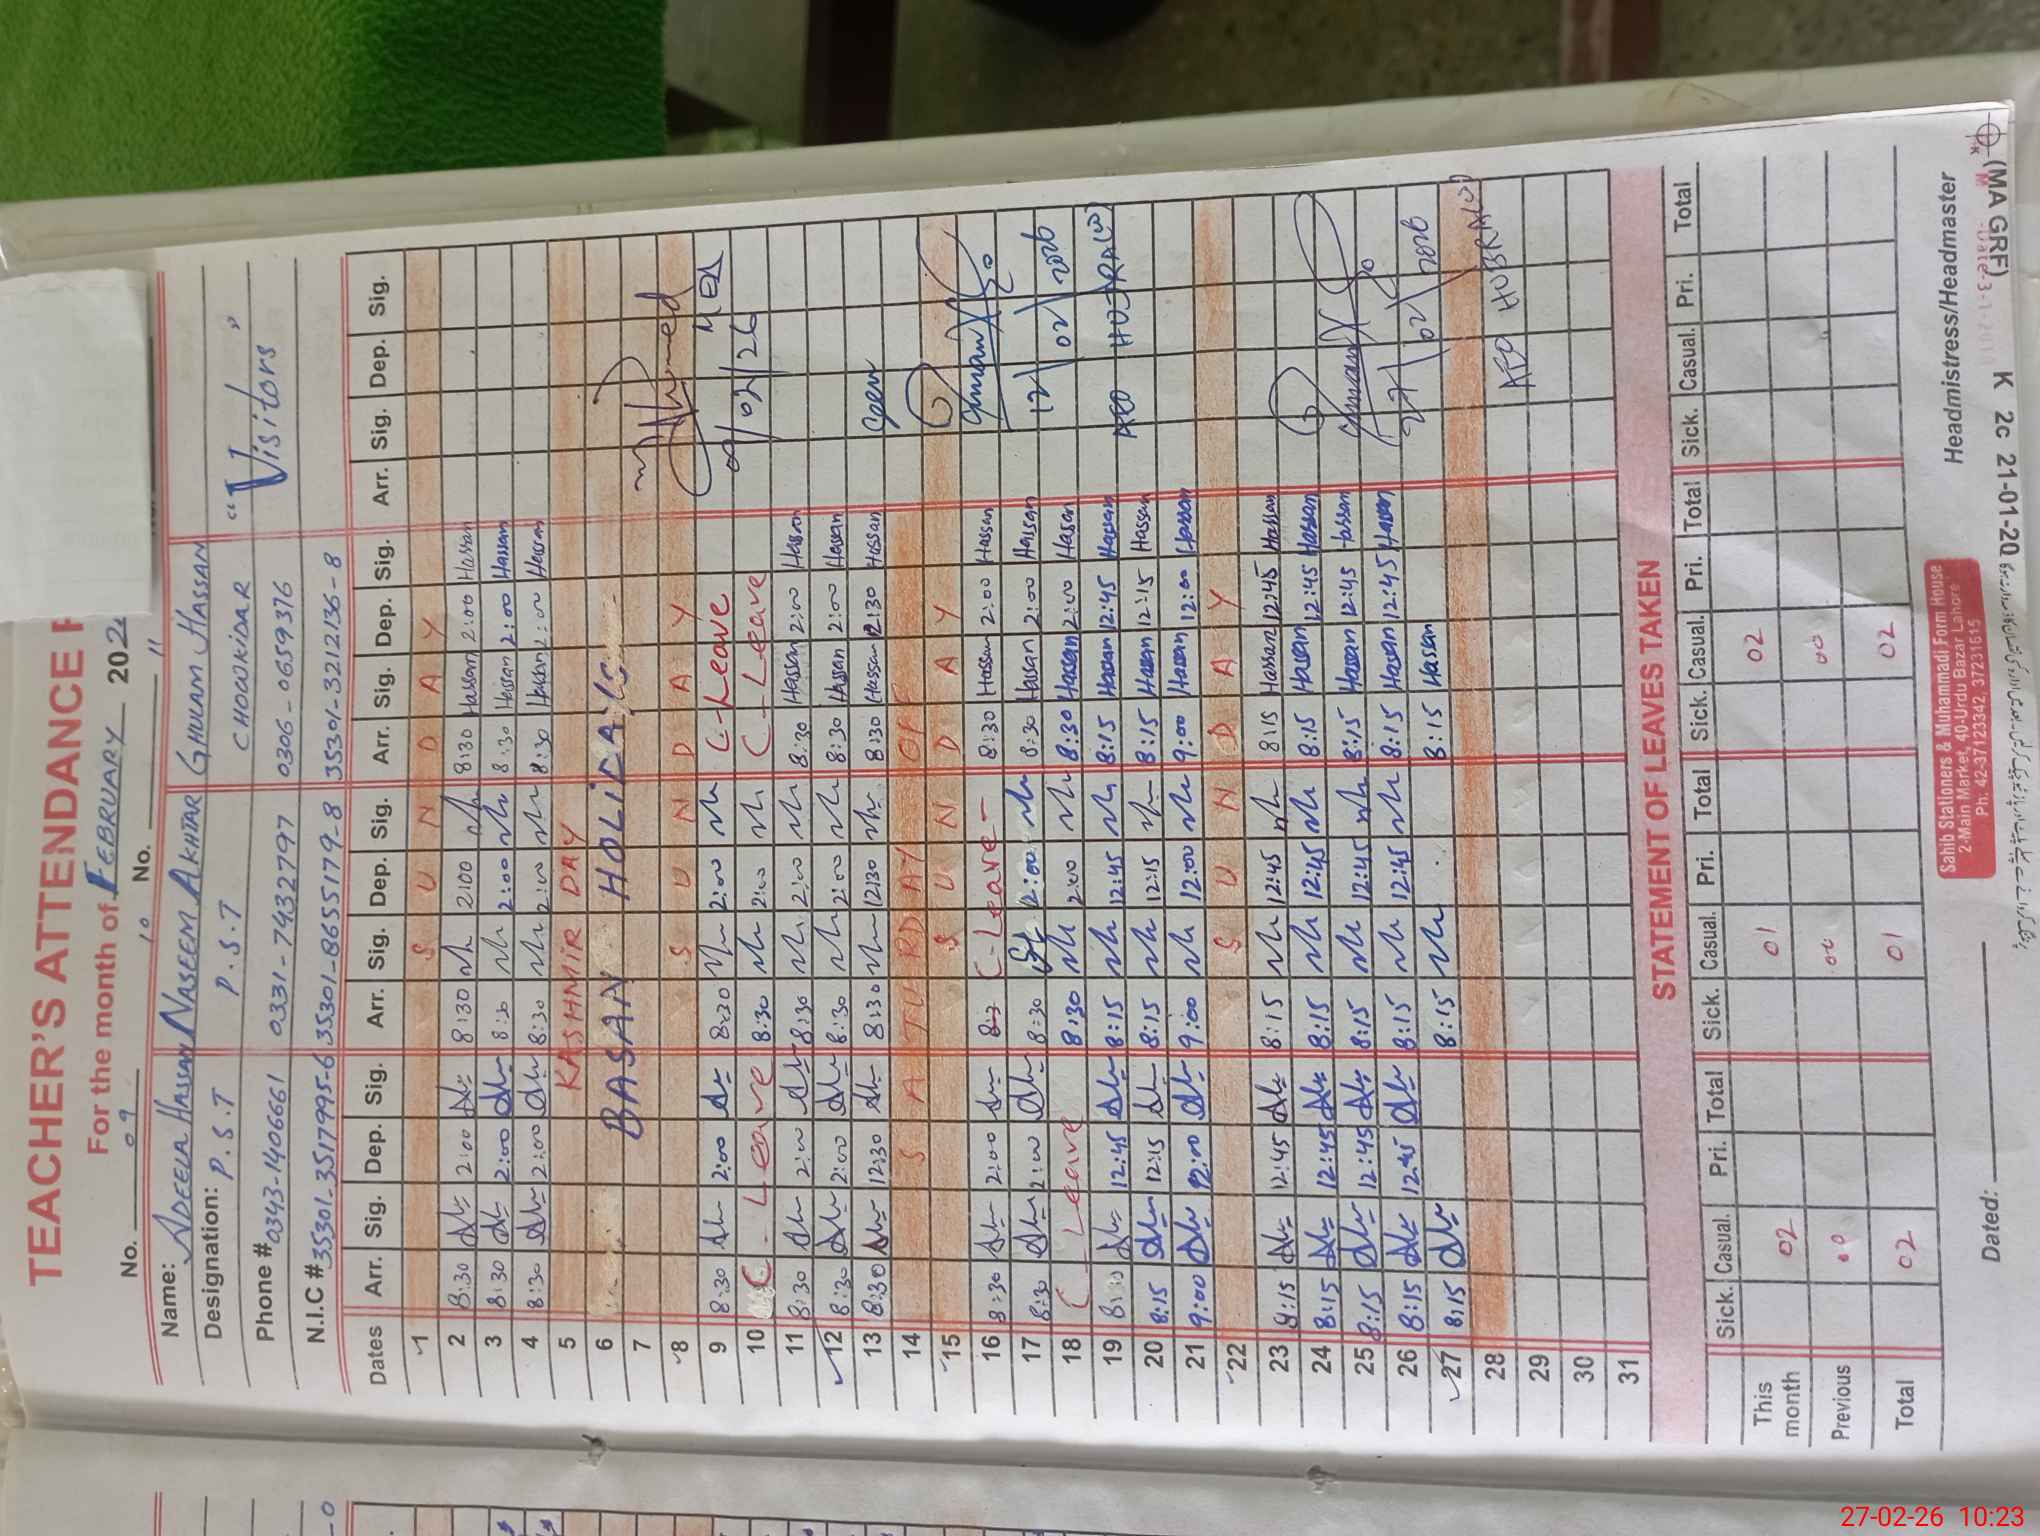 TEACHER'S ATTENDANCE
For the month of FEBRUARY 202
No. 09 No. 10 No. 11
Name: ADEELA HASSAN NASEEM AKHTAR GHULAM HASSAN
Designation: P.S.T P.S.T CHOWKIDAR "Visitors"
Phone # 0343-1406661 0331-7432797 0306-0659376
N.I.C # 35301-3517995-6 35301-8655179-8 35301-3212136-8
Dates Arr. Sig. Dep. Sig. Arr. Sig. Dep. Sig. Arr. Sig. Dep. Sig. Arr. Sig. Dep. Sig.
1 S U N D A Y
2 8:30 2:00 8:30 2:00 8:30 Hassan 2:00 Hassan
3 8:30 2:00 8:30 2:00 8:30 Hassan 2:00 Hassan
4 8:30 2:00 8:30 2:00 8:30 Hassan 2:00 Hassan
5 KASHMIR DAY
6 BASAN HOLIDAYS
7
8 S U N D A Y
9 8:30 2:00 8:30 2:00 C-Leave MEA
10 C-Leave 8:30 2:00 C-Leave 9/02/26
11 8:30 2:00 8:30 2:00 8:30 Hassan 2:00 Hassan
12 8:30 2:00 8:30 2:00 8:30 Hassan 2:00 Hassan
13 8:30 12:30 8:30 12:30 8:30 Hassan 12:30 Hassan Seen
14 S A TU RD AY OFF
15 S U N D A Y
16 8:30 2:00 C-Leave- 8:30 Hassan 2:00 Hassan
17 8:30 2:00 8:30 2:00 8:30 Hassan 2:00 Hassan 12/02/2026
18 C-Leave 8:30 2:00 8:30 Hassan 2:00 Hassan
19 8:30 12:45 8:15 12:45 8:15 Hassan 12:45 Hassan AEO HUJRA(W)
20 8:15 12:15 8:15 12:15 8:15 Hassan 12:15 Hassan
21 9:00 12:00 9:00 12:00 9:00 Hassan 12:00 Hassan
22 S U N D A Y
23 8:15 12:45 8:15 12:45 8:15 Hassan 12:45 Hassan
24 8:15 12:45 8:15 12:45 8:15 Hassan 12:45 Hassan
25 8:15 12:45 8:15 12:45 8:15 Hassan 12:45 Hassan
26 8:15 12:45 8:15 12:45 8:15 Hassan 12:45 Hassan 27/02/2026
27 8:15 8:15 8:15 Hassan
28 AEO HUJRA(W)
29
30
31
STATEMENT OF LEAVES TAKEN
Sick. Casual. Pri. Total Sick. Casual. Pri. Total Sick. Casual. Pri. Total Sick. Casual. Pri. Total
This month 02 01 02
Previous 00 00 00
Total 02 01 02
Dated: Headmistress/Headmaster
Sahib Stationers & Muhammadi Form House
2-Main Market, 40-Urdu Bazar Lahore
Ph: 42-37123342, 37231615
K 2c 21-01-20 (MA GRF)
27-02-26 10:23